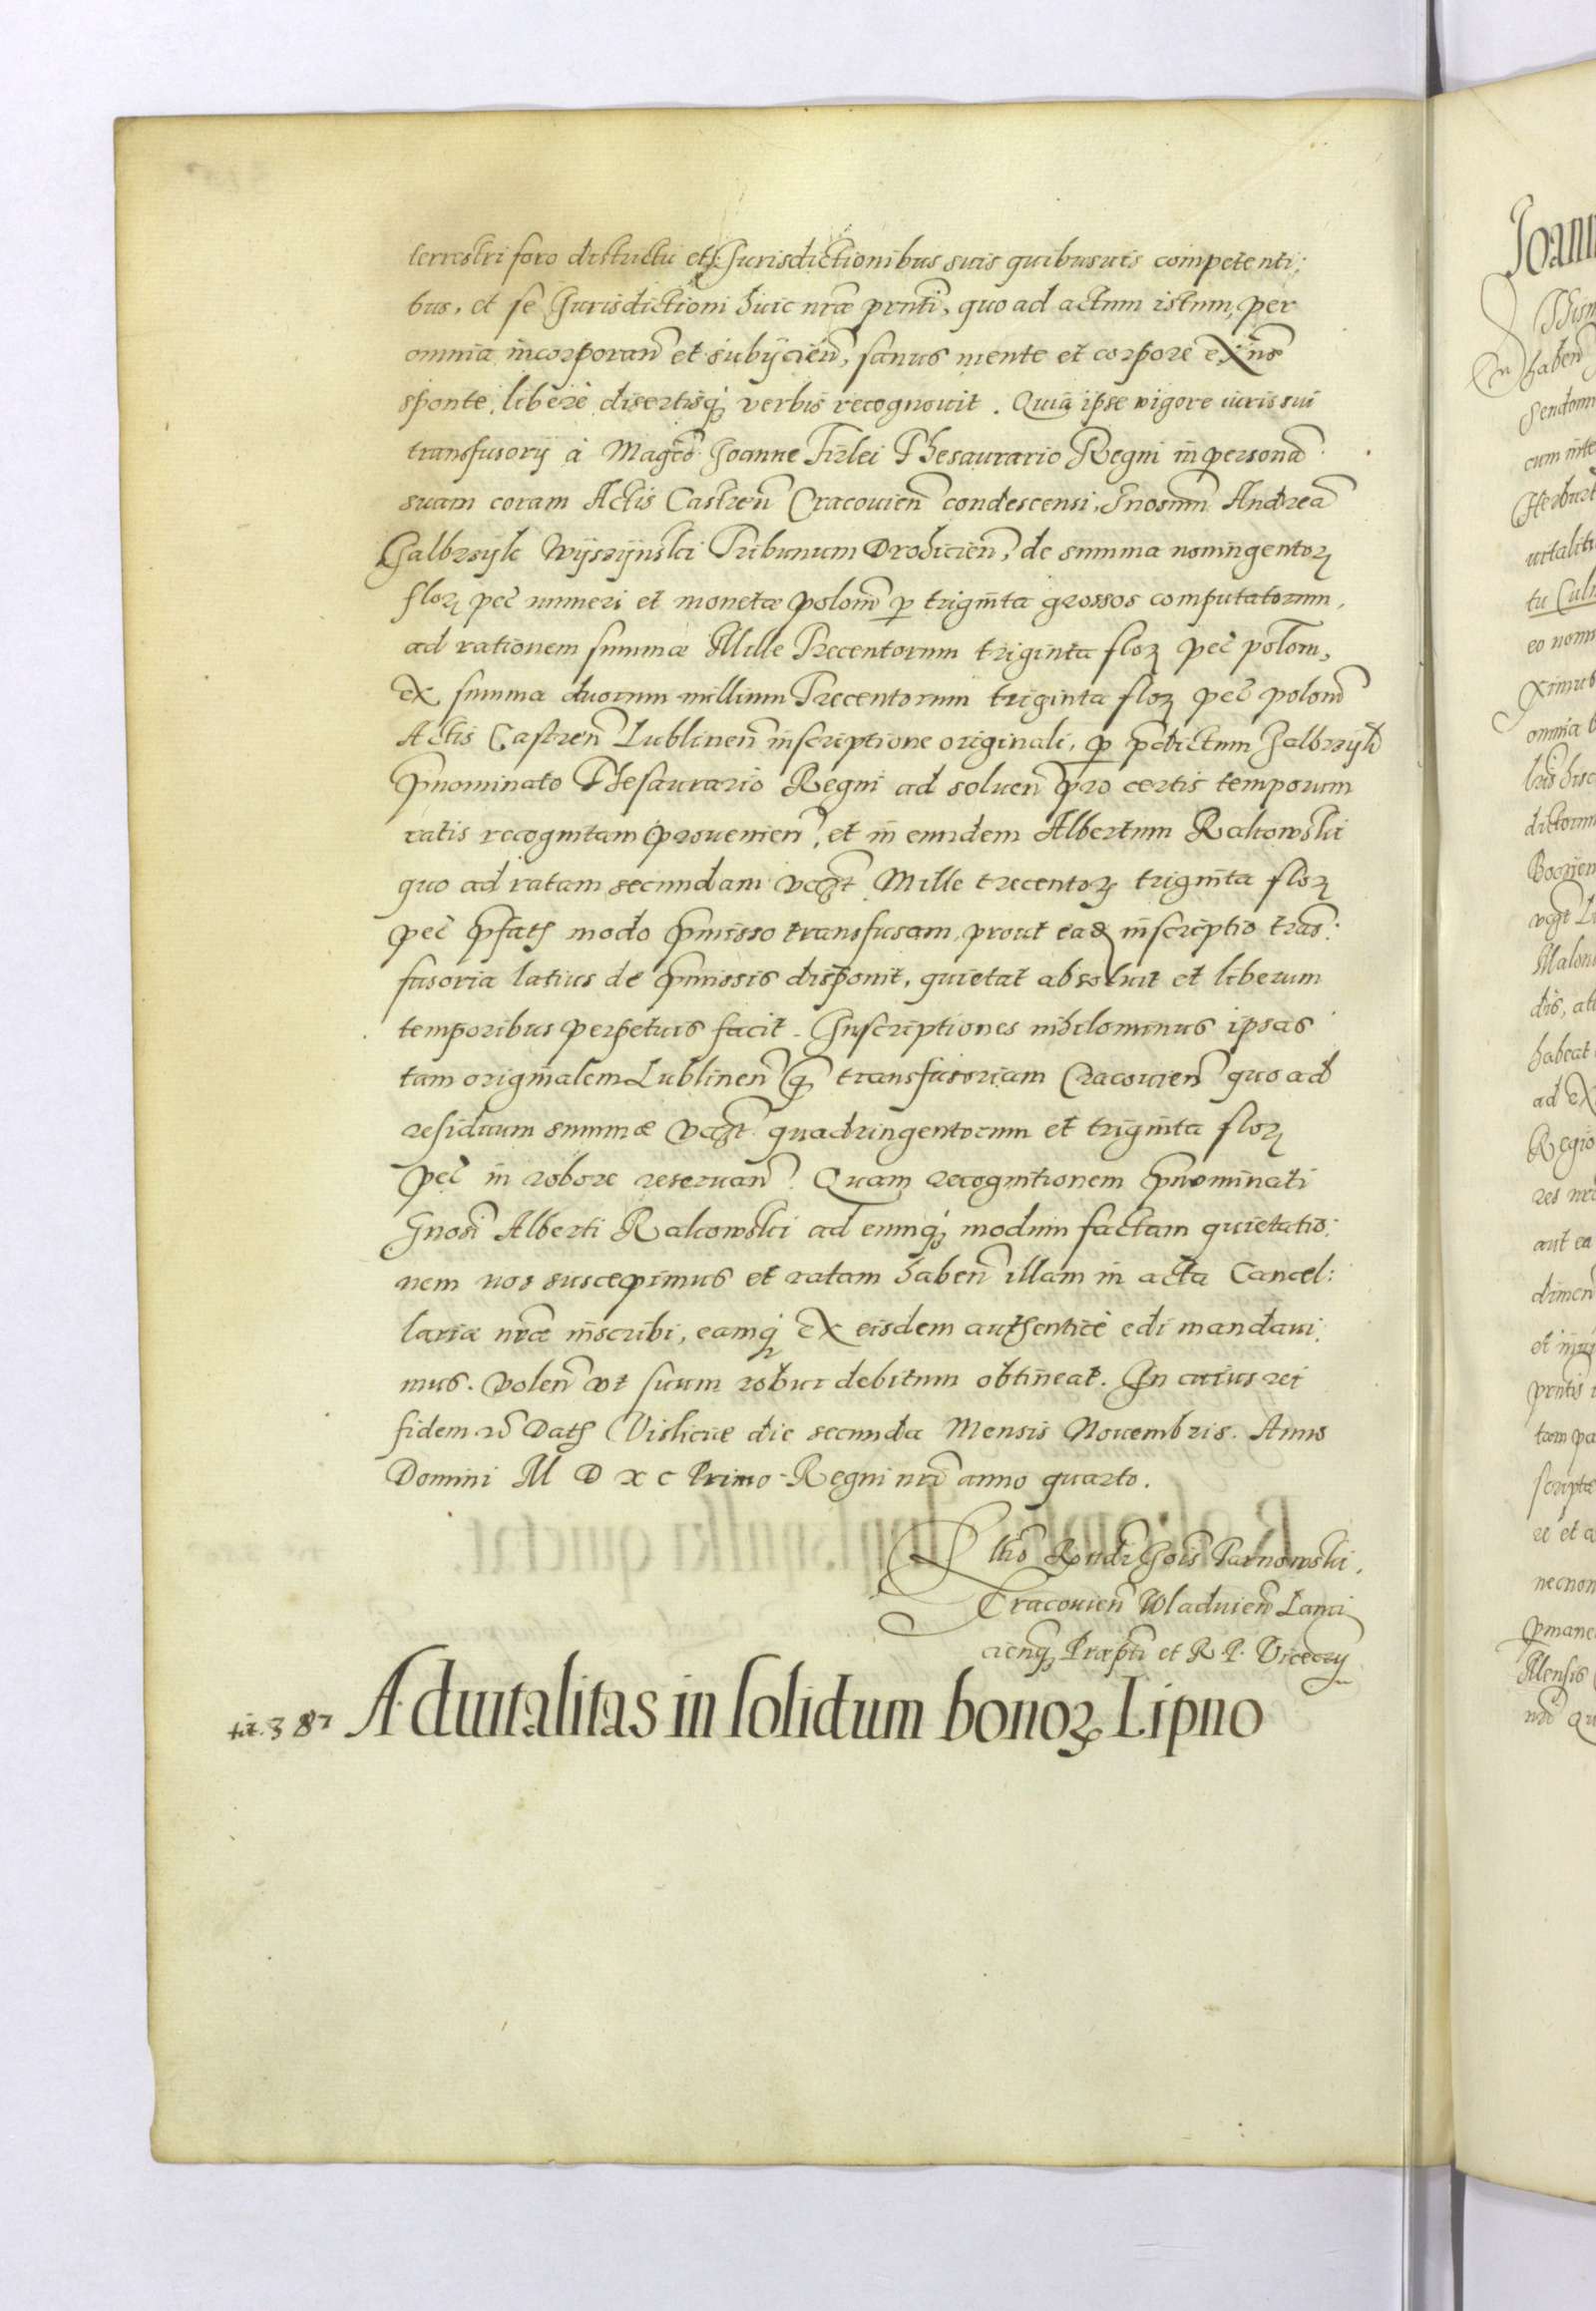 terrestri foro districtu et Jurisdictionibus suis quibusuis competenti:
bus, et se Jurisdictioni huic nrae prnti, quo ad actum istum, per
omnia incorporan et subijcien, sanus mente et corpore exns
sponte, libere disertisq verbis recognouit. Quia ipse vigore iuris sui
transfusorij à Magco Joanne Firlei Thesaurario Regni in persona
suam coram Actis Castren Cracouien condescensi, Gnosum Andrea
Jalbrzyk Wyszynski Tribunum Drohicien, de summa nonningentoꝝ
floꝝ pec numeri et monetae polon ꝑ triginta grossos computatorum,
ad rationem summae Mille Trecentorum triginta floꝝ pec polon,
ex summa duorum millium Trecentorum triginta floꝝ pec polon
Actis Castren Lublinen inscriptione originali, ꝑ pdictum Jalbrzyk
pnominato Thesaurario Regni ad soluen pro certis temporum
ratis recognitam prouenien, et in eundem Albertum Rakowski
quo ad ratam secundam vdzt Mille trecentoꝝ triginta floꝝ
pec pfath modo pmisso transfusam, prout ead inscriptio tras:
fusoria latius de pmissis disponit, quietat absoluit et liberum
temporibus perpetuis facit. Inscriptiones nihilominus ipsas
tam originalem Lublinen q transfusoriam Cracouien quo ad
residuum summae vdzt quadringentorum et triginta floꝝ
pec in robore reseruan. Quam recognitionem pnominati
Gnosi Alberti Rakowski ad eumq modum factam quietatio:
nem nos suscepimus et ratam haben illam in acta Cancel:
lariae nrae inscribi, eamq ex eisdem authentice edi mandaui:
mus. Volen vt suum robur debitum obtineat. In cuius rei
fidem Dath Visliciae die secunda Mensis Nouembris. Anno
Domini M D X C Primo Regni nri anno quarto.
Rndi Jois Tarnowski,
Cracouien Wladuien Lanci
cienq Praepti et R. P. Vicecan
387 Aduitalitas in solidum bonoꝝ Lipno